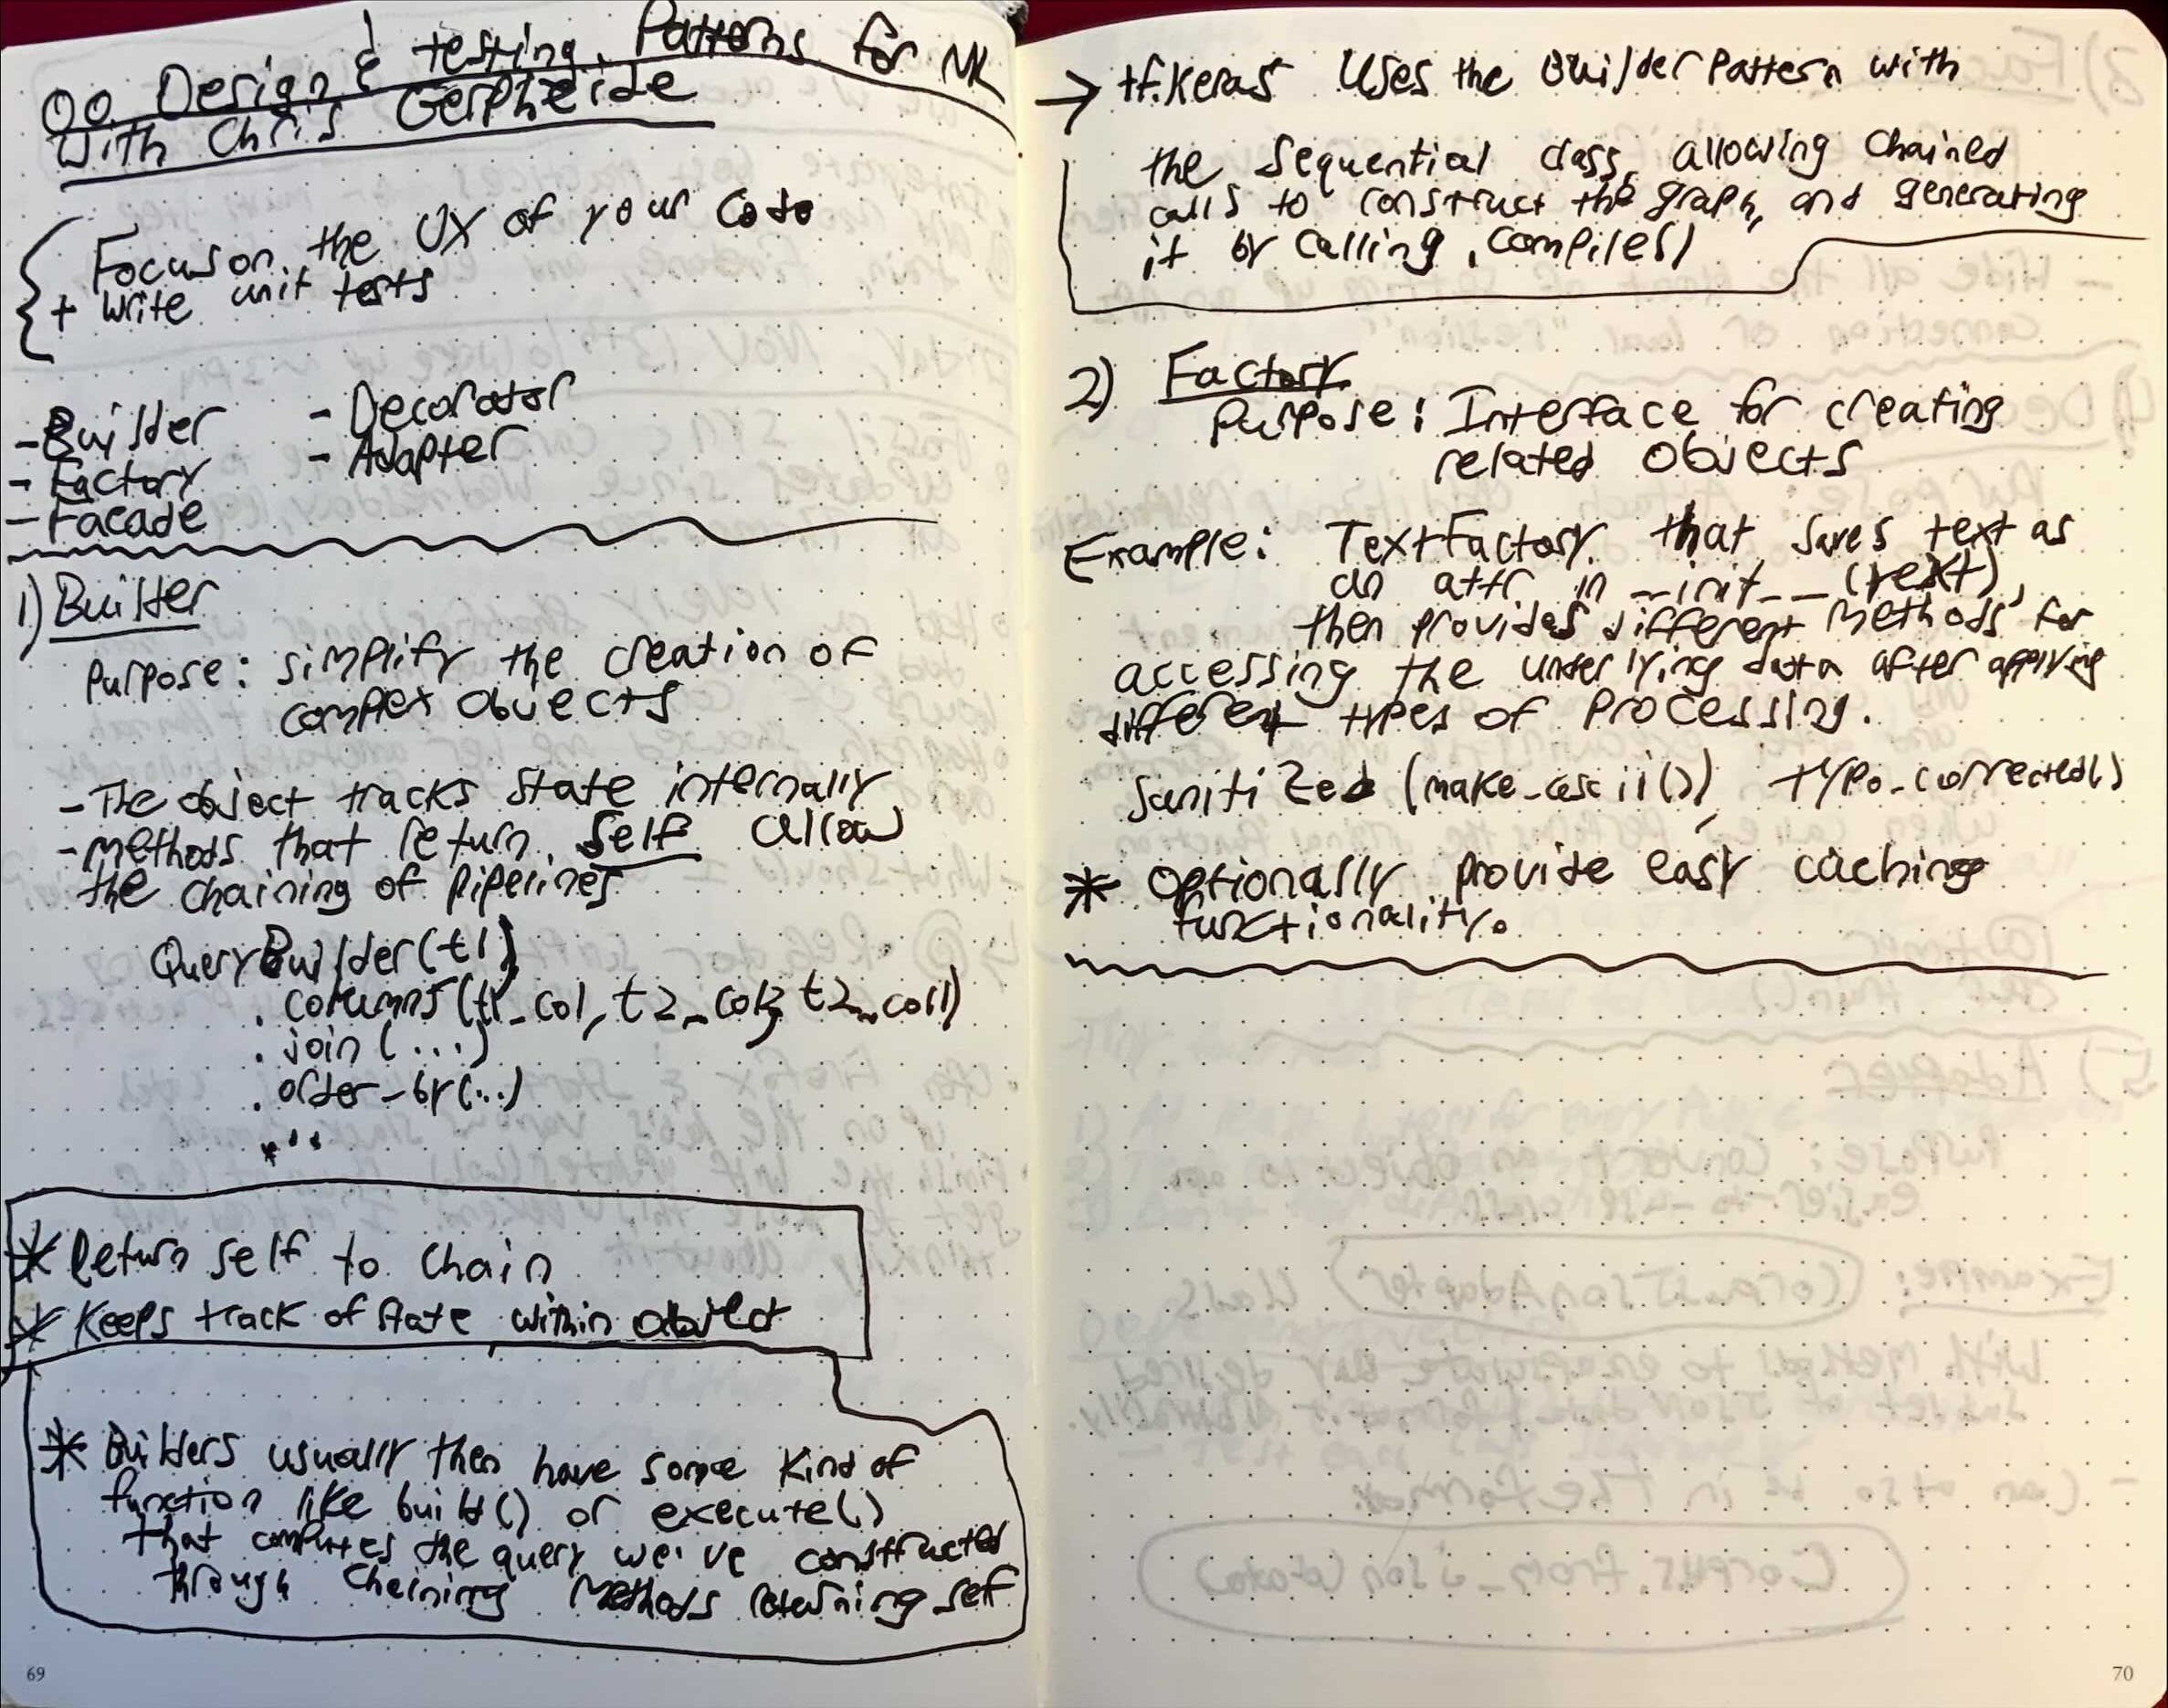 OO Design & testing Patterns for ML
with Chris Gerpheide
Focus on the UX of your code
+ write unit tests
- Builder
- Factory
- Facade
- Decorator
- Adapter
1) Builder
Purpose: simplify the creation of
complex objects
- The object tracks state internally
- methods that return self allow
the chaining of pipelines
QueryBuilder(t1)
. columns(t1_col, t2_col2, t2_col1)
. join (...)
. order_by(...)
...
* Return self to chain
* Keeps track of state within object
* Builders usually then have some kind of
function like build() or execute()
that computes the query we've constructed
through chaining methods returning self
69
→ tf.keras uses the Builder Pattern with
the Sequential class, allowing chained
calls to construct the graph, and generating
it by calling .compile()
2) Factory
Purpose: Interface for creating
related objects
Example: TextFactory that saves text as
an attr in __init__(text),
then provides different methods for
accessing the underlying data after applying
different types of processing.
sanitized (make_ascii()), typo_corrected()
* Optionally provide easy caching
functionality.
70